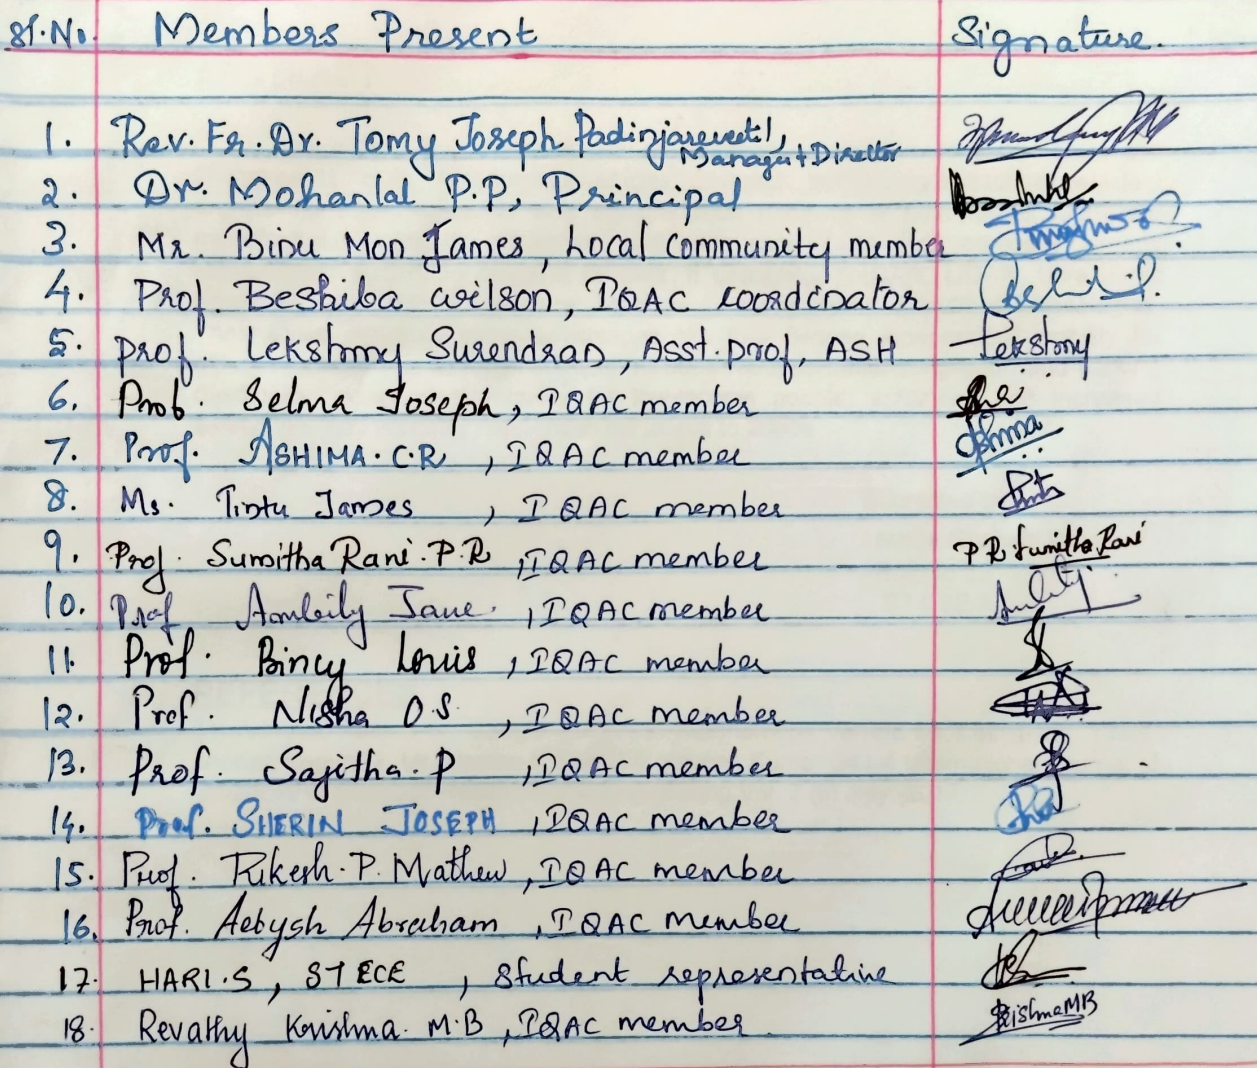 Sl.No. Members Present Signature.
1. Rev. Fr. Dr. Tomy Joseph Padinjareveetil,
Manager + Director
2. Dr. Mohanlal P.P, Principal
3. Mr. Binu Mon James, Local community member
4. Prof. Beshiba Wilson, IQAC coordinator
5. Prof. Lekshmy Surendran, Asst. prof, ASH Lekshmy
6. Prof. Selma Joseph, IQAC member
7. Prof. ASHIMA. C.R, IQAC member Ashima
8. Ms. Tintu James, IQAC member
9. Prof. Sumitha Rani. P.R, IQAC member P R Sumitha Rani
10. Prof Ambily Jane, IQAC member
11. Prof. Bincy Louis, IQAC member
12. Prof. Nisha O.S, IQAC member
13. Prof. Sajitha. P, IQAC member
14. Prof. SHERIN JOSEPH, IQAC member
15. Prof. Rikesh. P. Mathew, IQAC member
16. Prof. Aebysh Abraham, IQAC member
17. HARI.S, S7 ECE, Student representative
18. Revathy Krishna. M.B, IQAC member KrishnaMB